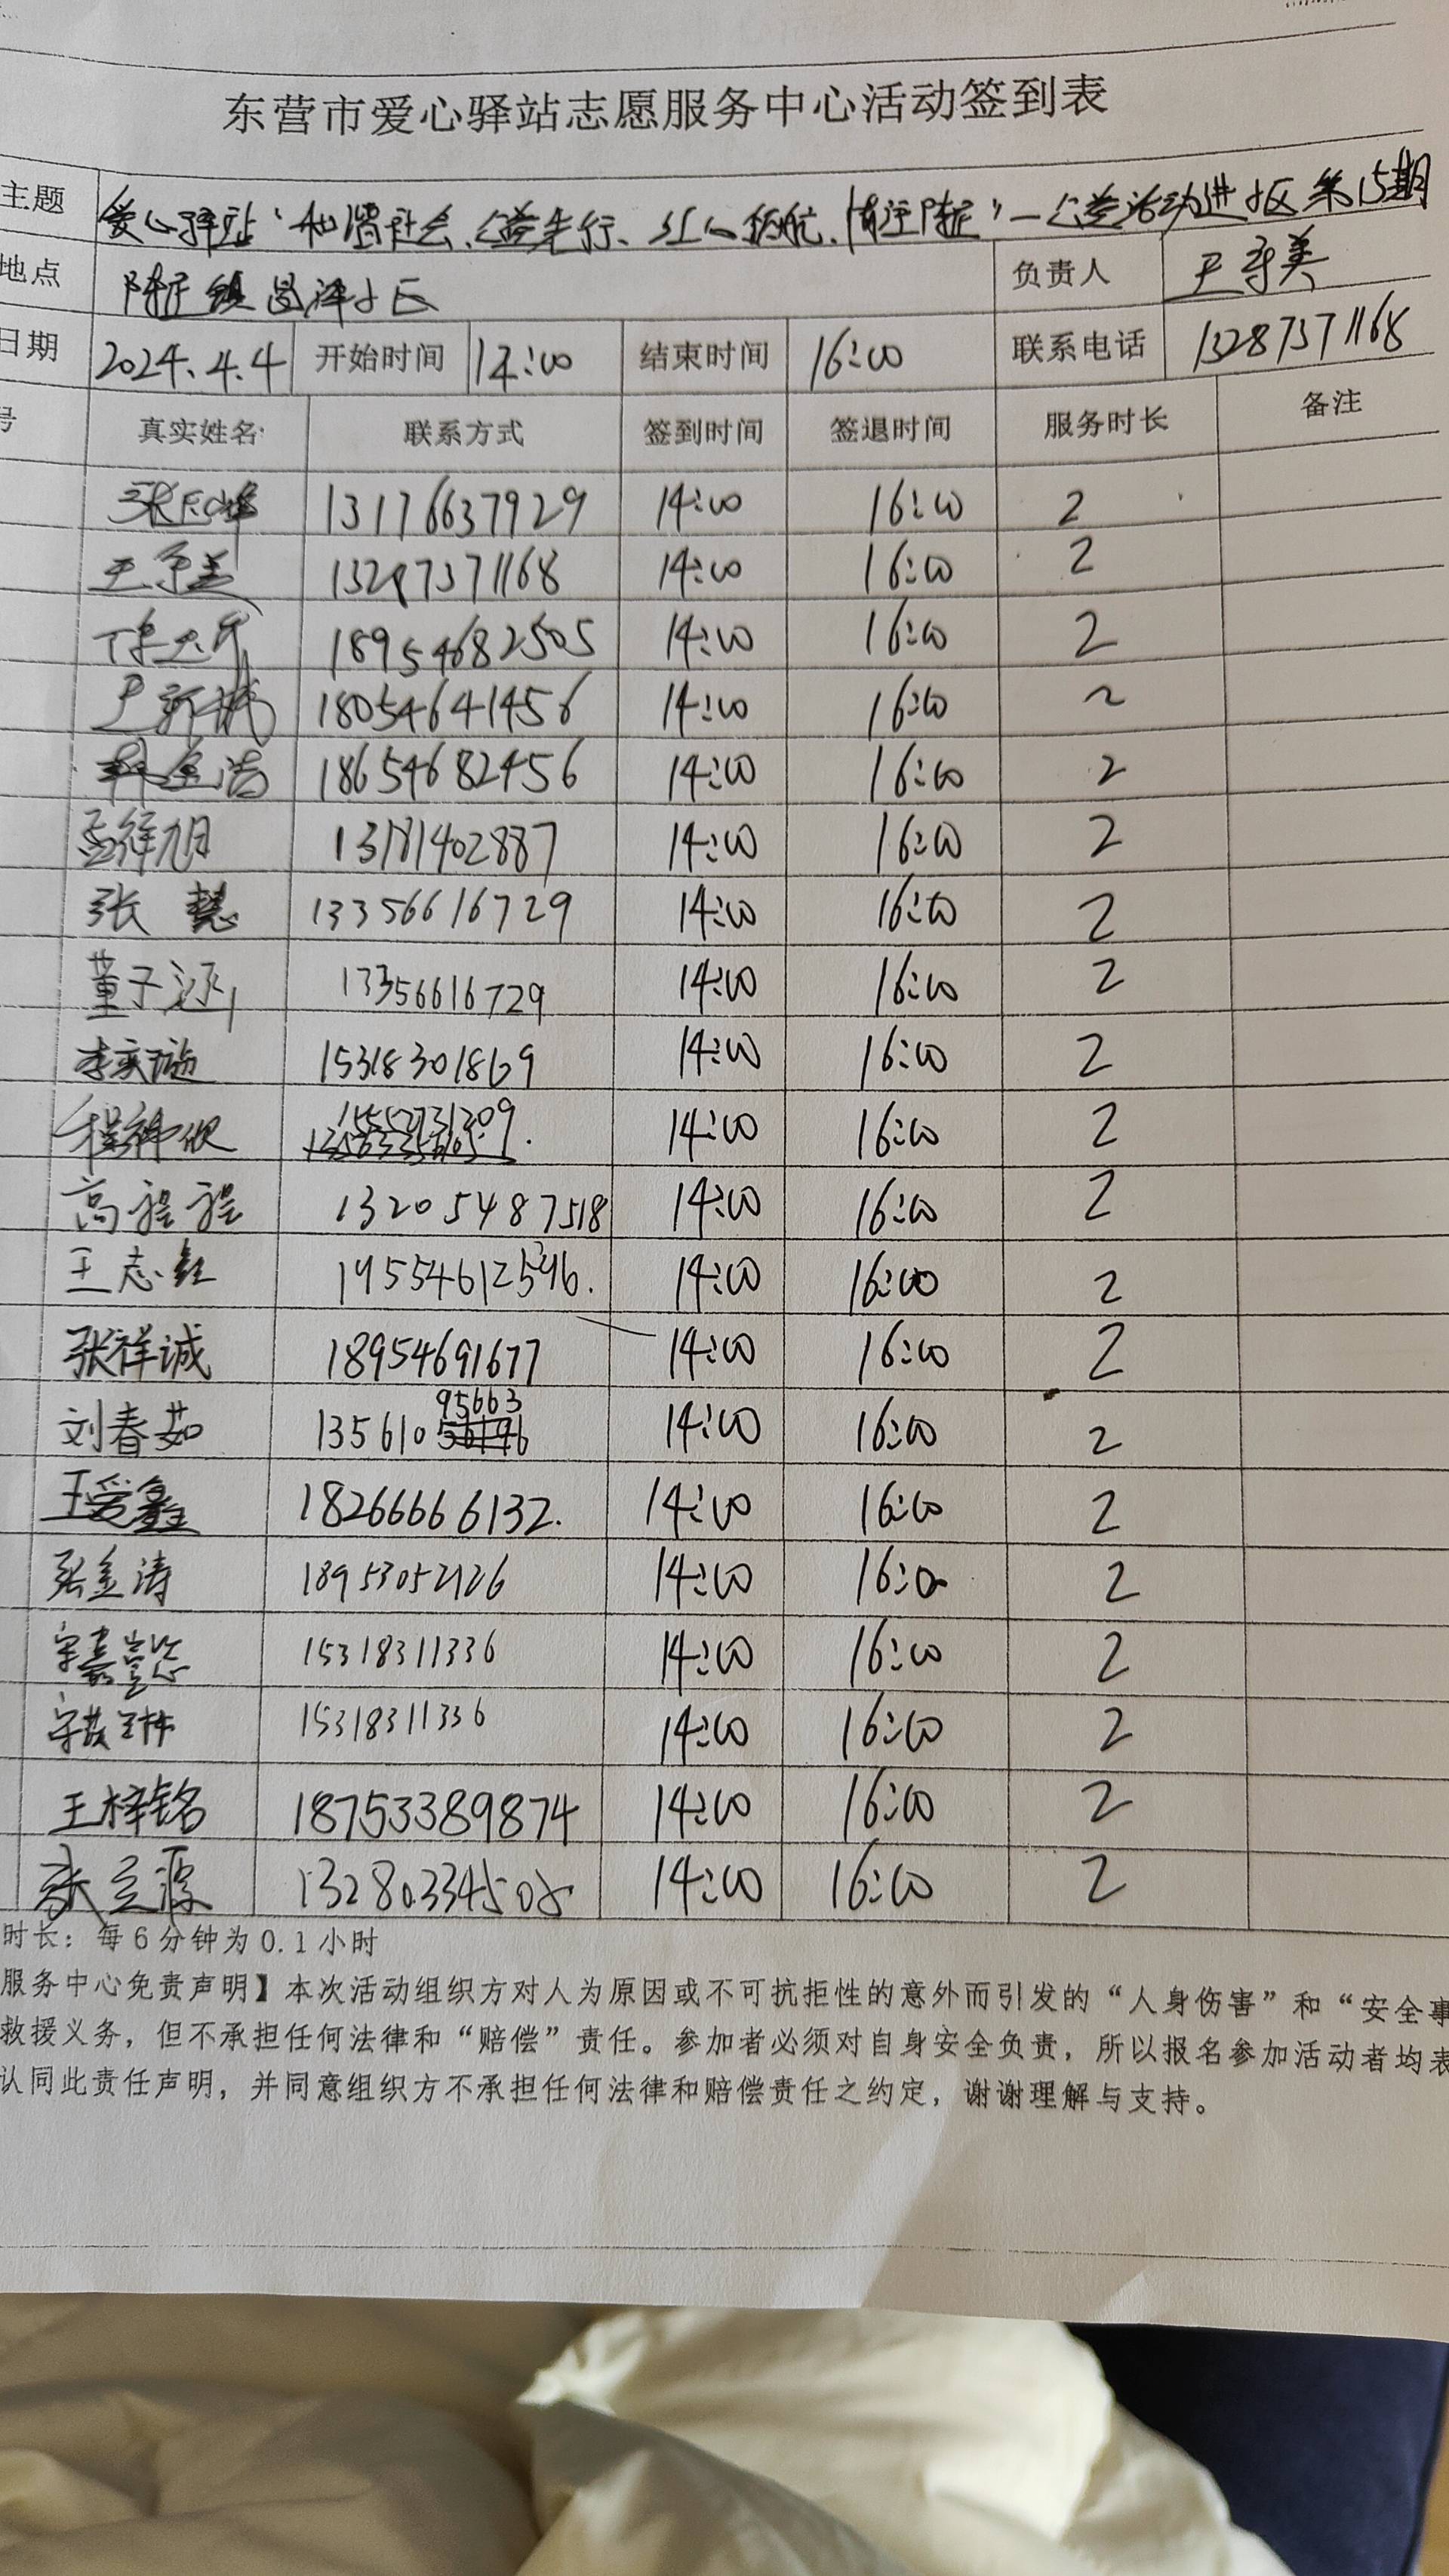 东营市爱心驿站志愿服务中心活动签到表
主题 爱心驿站“和谐社会、公益先行、红心领航、情注陈庄”一公益活动进小区第15期
地点 陈庄镇 小区 负责人 王守美
日期 2024.4.4 开始时间 14:00 结束时间 16:00 联系电话 13287371168
号 真实姓名 联系方式 签到时间 签退时间 服务时长 备注
13176637929 14:00 16:00 2
王守美 13287371168 14:00 16:00 2
18954682505 14:00 16:00 2
18054641456 14:00 16:00 2
18654682456 14:00 16:00 2
孟祥旭 13181402887 14:00 16:00 2
张慧 13356616729 14:00 16:00 2
董子涵 13356616729 14:00 16:00 2
李奕璇 15318301869 14:00 16:00 2
14:00 16:00 2
高程程 13205487518 14:00 16:00 2
王志红 14:00 16:00 2
张祥诚 18954691677 14:00 16:00 2
刘春茹 13561095663 14:00 16:00 2
王爱鑫 18266666132. 14:00 16:00 2
张金涛 18953052126 14:00 16:00 2
15318311336 14:00 16:00 2
15318311336 14:00 16:00 2
王梓铭 18753389874 14:00 16:00 2
张立源 14:00 16:00 2
时长：每6分钟为0.1小时
服务中心免责声明】本次活动组织方对人为原因或不可抗拒性的意外而引发的“人身伤害”和“安全事
救援义务，但不承担任何法律和“赔偿”责任。参加者必须对自身安全负责，所以报名参加活动者均表
认同此责任声明，并同意组织方不承担任何法律和赔偿责任之约定，谢谢理解与支持。